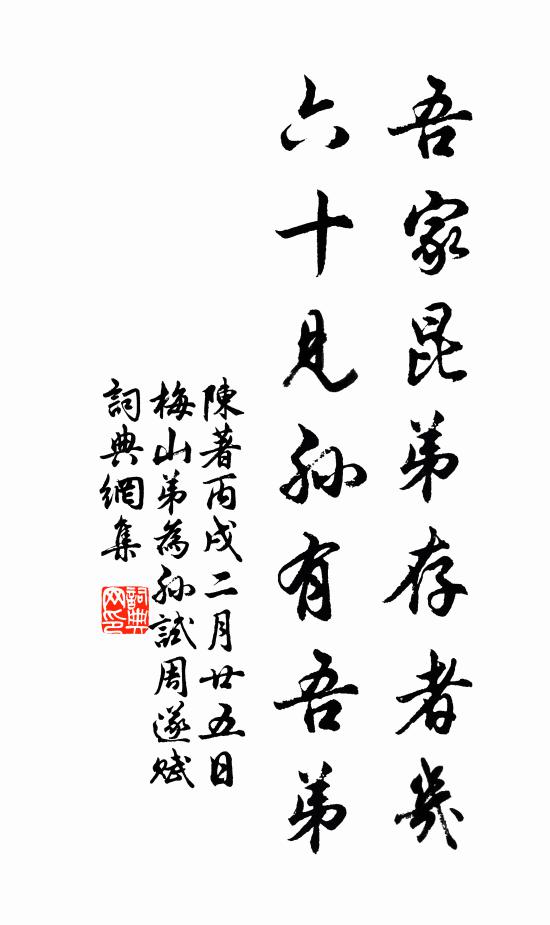 吾家昆弟存者幾
六十見孫有吾弟
陳著丙戌二月廿五日
梅山弟為孫試周遂賦
詞典網集
詞典
网印